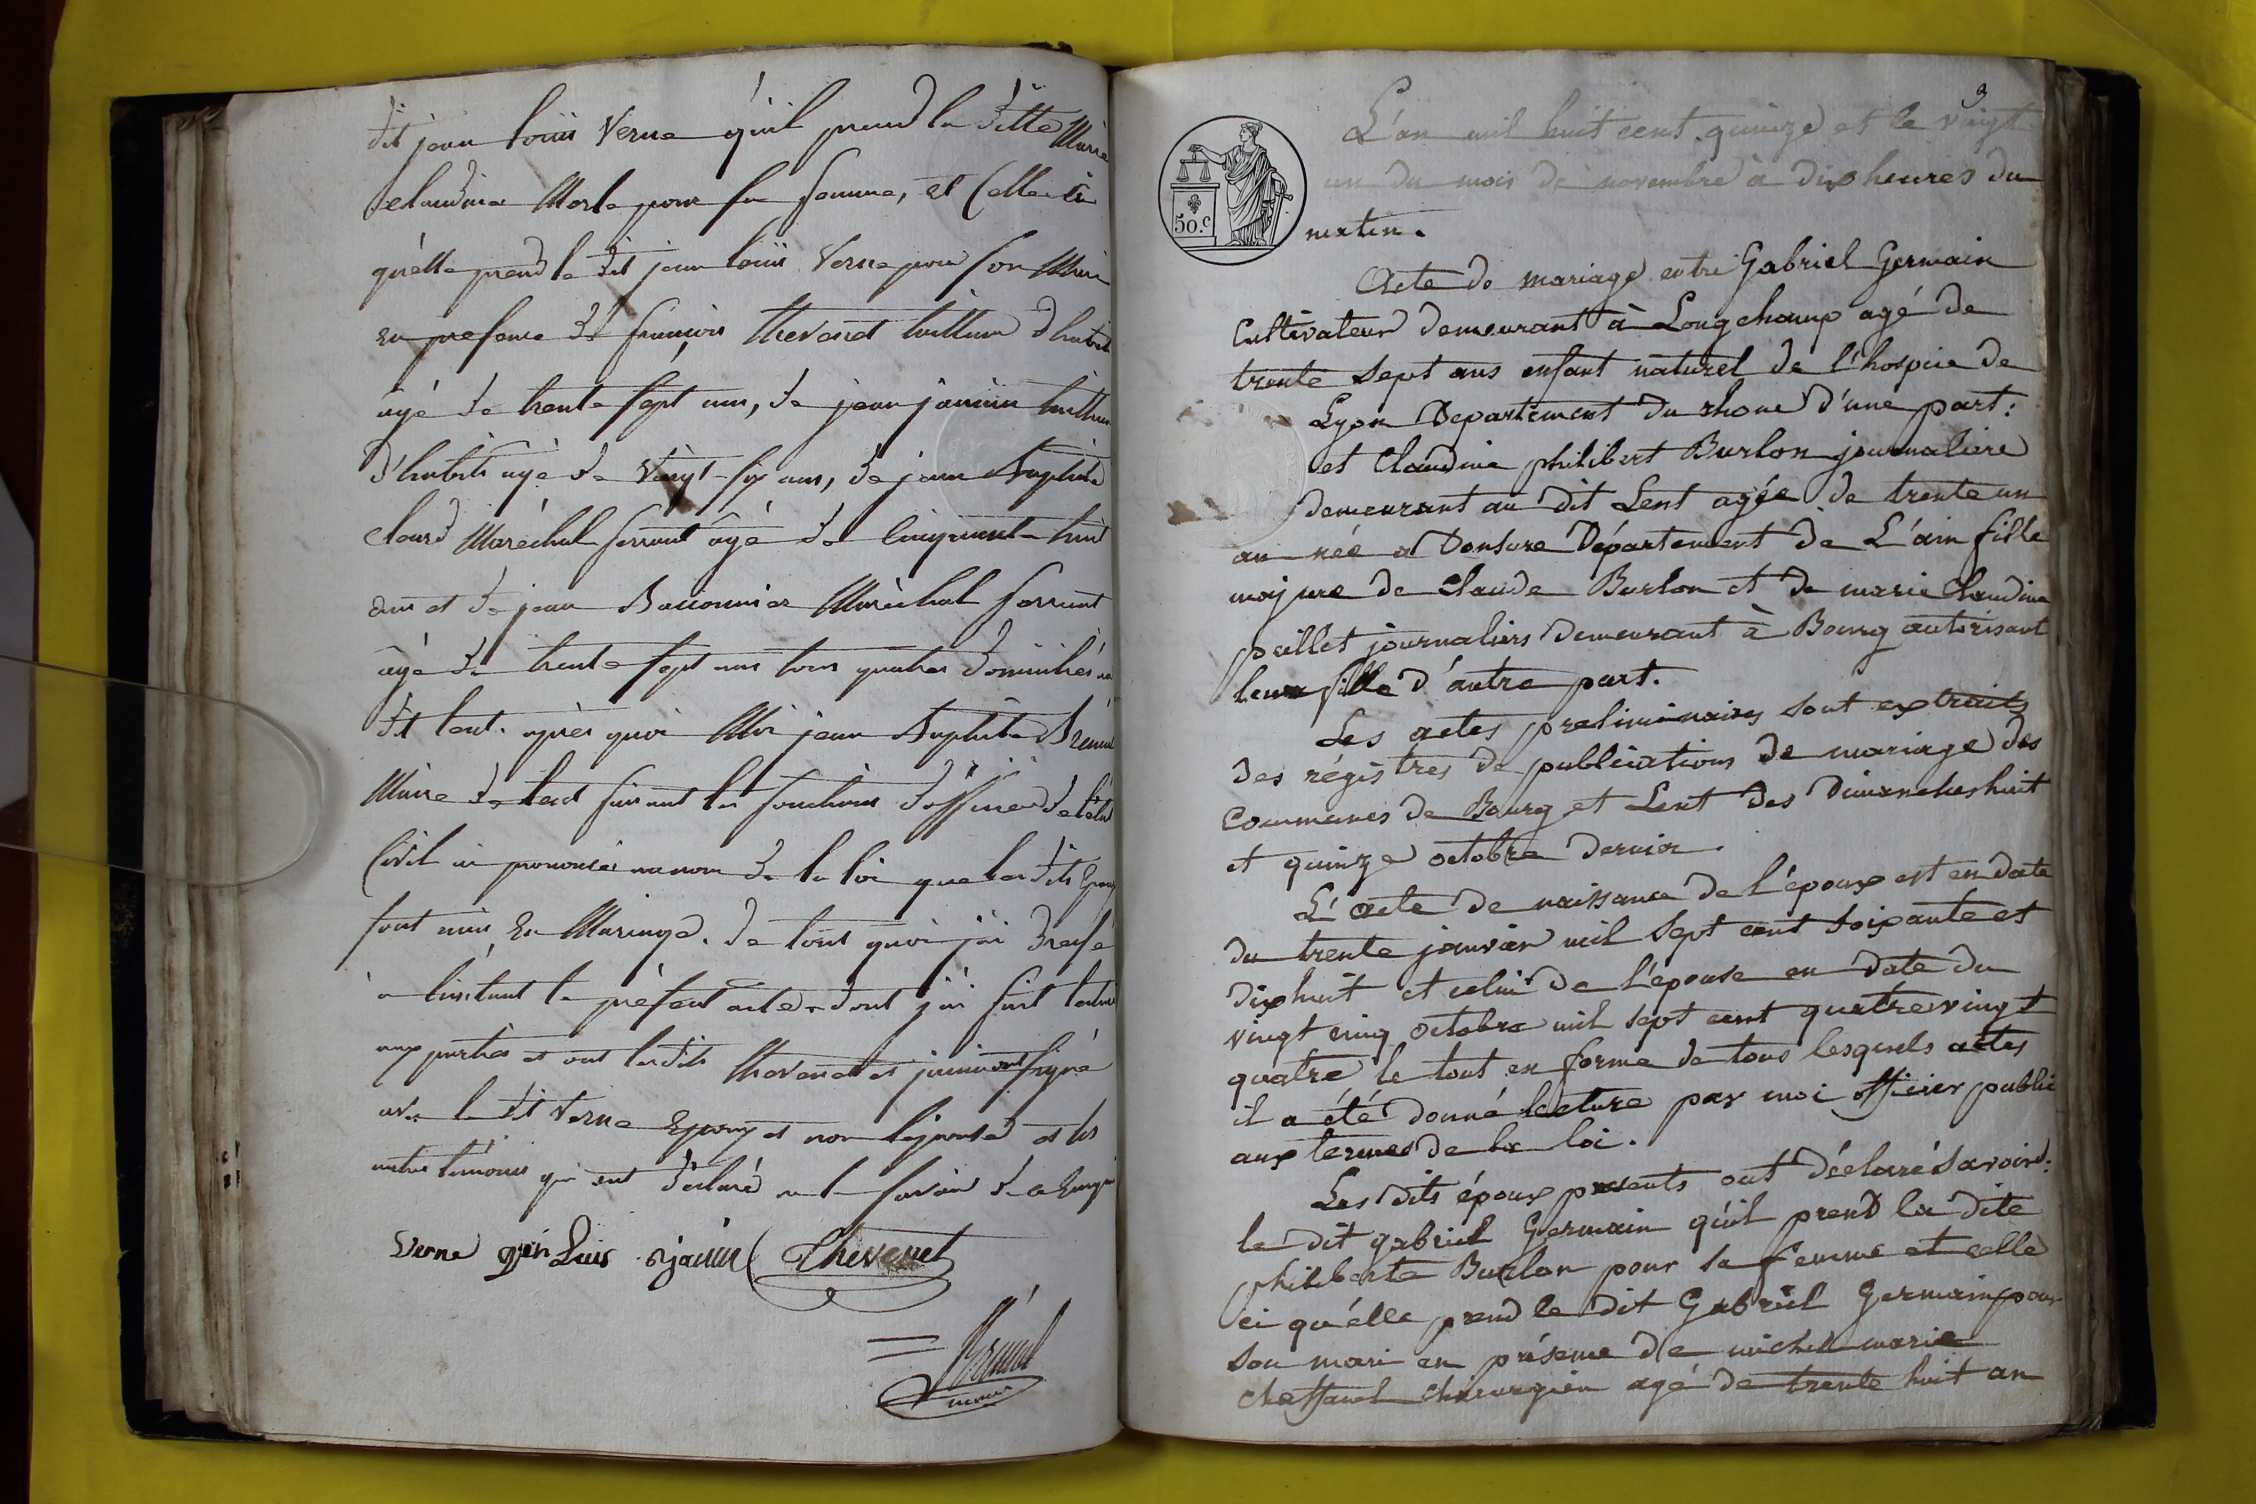 dit jean louis Verne qu'il prend la ditte Marie
claudine Morle pour sa femme, et Celle ci
qu'elle prend le dit jean louis Verne pour son Mari
en presence de françois thevenet tailleur d'habits
agé de trente sept ans, de jean janiin tailleur
d'habits agé de vingt-six ans, de jean Baptiste
Maréchal ferrant âgé de cinquante huit
ans et de jean Maréchal ferrant
agé de trente sept ans tous quatres domiciliés au
dit lent. après quoi Moi jean Baptiste
Maire de lent faisant les fonctions d'officier de l'état
Civil ai prononcé au nom de la loi que les dits Epoux
sont unis En Mariage. de tout quoi j'ai dressé
a linstant le présent acte dont j'ai fait lecture
aux parties et ont lesdits thevenet et janiin signé
avec le dit Verne Epoux et non l'épouse et les
autres témoins qui ont déclaré ne le savoir de ce Enquis
Verne Luis janiin Thevenet
maire
3
50.c
L'an mil huit cent quinze et le vingt
un du mois de novembre à dix heures du
matin.
Acte de mariage entre Gabriel Germain
Cultivateur demeurant à Longchamp agé de
trente sept ans enfant naturel de l'hospice de
Lyon Departement du rhone d'une part:
et Claudine philibert Burlon journaliere
demeurant au dit Lent agée de trente un
an née a Donsure Département de L'ain fille
majure de Claude Burlon et de marie Claudine
peillet journaliers demeurant à Bourg autorisant
leur fille d'autre part.
Les actes preliminaires sont extraits
des régistres de publications de mariage des
communes de Bourg et Lent des dimanches huit
et quinze octobre dernier.
L'acte de naissance de l'époux est en date
du trente janvier mil sept cent soixante et
dixhuit et celui de l'épouse en date du
vingt cinq octobre mil sept cent quatrevingt
quatre le tout en forme de tous lesquels actes
il a été donné lecture par moi officier public
aux termes de la loi.
Les dits époux presents ont déclaré savoir:
le dit gabriel Germain qu'il prend la dite
philiberte Burlon pour sa femme et celle
ci qu'elle prend le dit Gabriel Germain pour
son mari en présence de michel marie
chirurgien agé de trente huit an